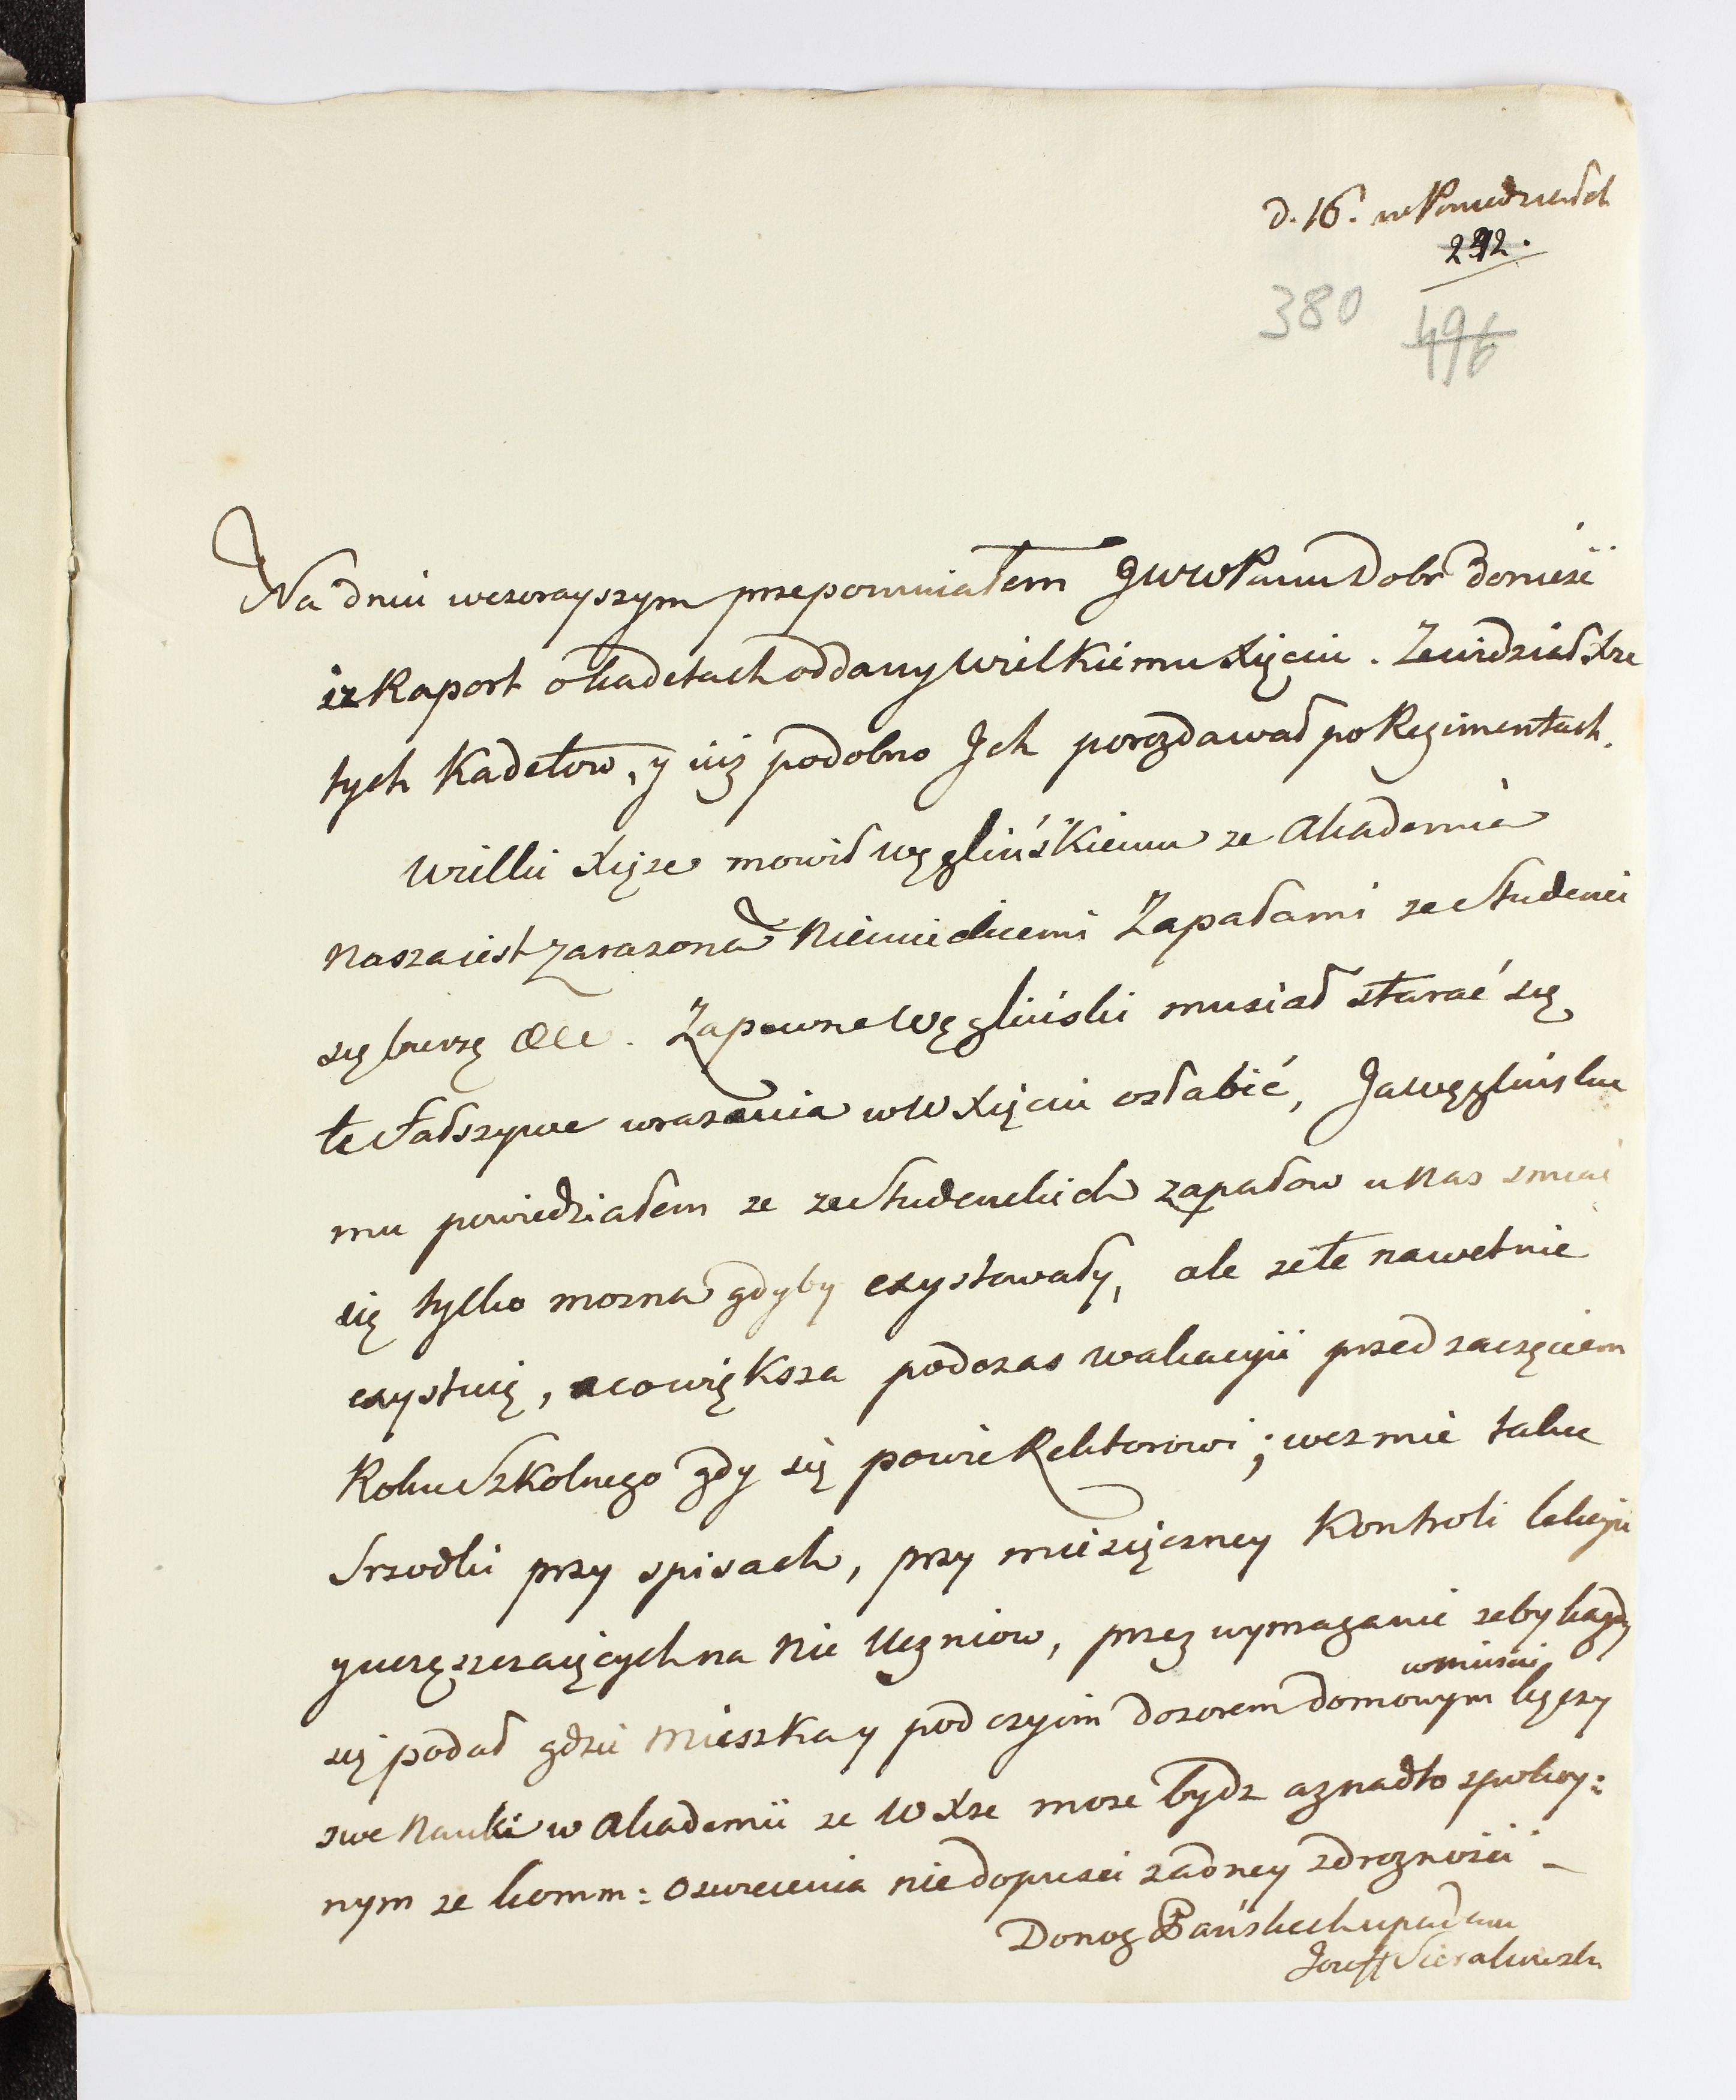 d. 16. w Poniedziałek
292.
380 496
Na dniu wczorayszym przepomniałem JWW Panu Dobr donieść
iz Raport o kadetach oddany Wielkiemu Xięciu. Zwidział Xze
tych Kadetow, y iuż podobno Jch porozdawał po Regimentach.
Wielki Xięze mowił Węglińskiemu ze Akademia
nasza iest zarazona Niemieckiemi Zapałami ze Studenci
się burzę &c. Zapewne Węgliński musiał starać się
te fałszywe wrazenia w W Xięciu osłabić, Ja Węglińskie
mu powiedziałem ze ze Studenckich zapałow u nas smiać
się tylko mozna gdyby exystowały, ale ze te nawet nie
exystuię, a co większa podczas wakacyii przed zaczęciem
Roku Szkolnego gdy się powie Rektorowi; wezmie takie
Srzodki przy spisach, przy miesięczney Kontroli lekcyii
y uczęszczaiących na nie Uczniow, przez wymaganie zeby kazdy
w miescie
się podał gdzie Mieszka y pod czyim dozorem domowym kączy
swe Nauki w Akademii ze W Xze moze bydz aż nadto spokoy:
nym ze komm: Oswiecenia niedopusci zadney zdrozności –
Do nog Pańskich upadam
Jozeff Sierakowski